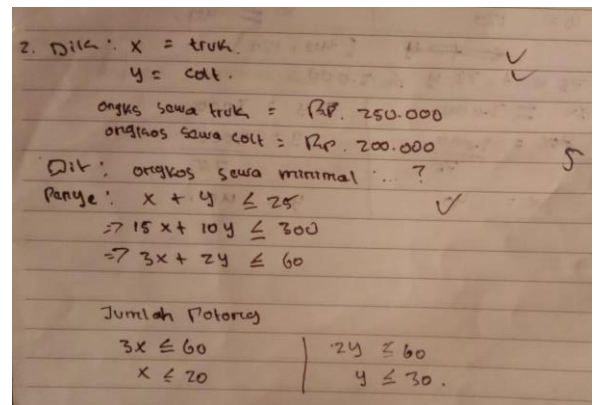 2. Dik : x = truk.
y = colt.
ongks sewa truk = Rp. 250.000
ongkos sewa colt = Rp. 200.000
5
Dit : ongkos sewa minimal ... ?
Penye : x + y ≤ 25
=> 15x + 10y ≤ 300
=> 3x + 2y ≤ 60
Jumlah Potong
3x ≤ 60 | 2y ≤ 60
x ≤ 20 | y ≤ 30.